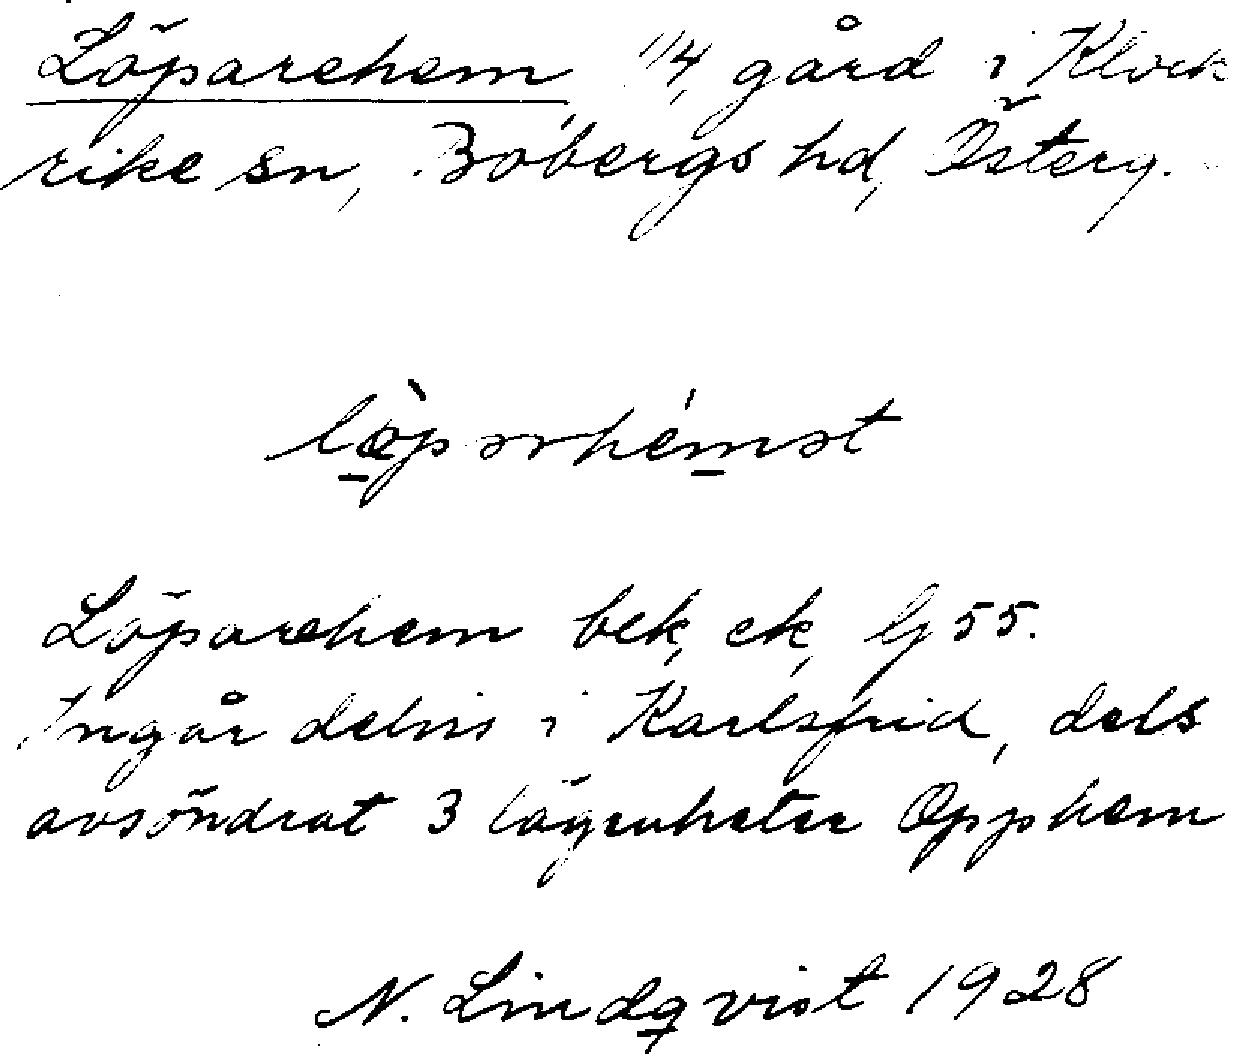 Löparehem, 1/4 gård i Klock
rike sn, Bobergs hd, Österg.
Löparehem bek, ek, lj 55.
Ingår delvis i Karlsfrid, dels
avsöndrat 3 lägenheter Opphem
N. Lindqvist 1928